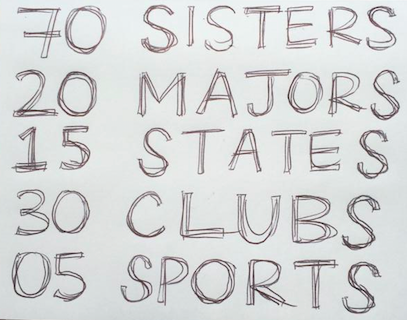 70 SISTERS
20 MAJORS
15 STATES
30 CLUBS
05 SPORTS